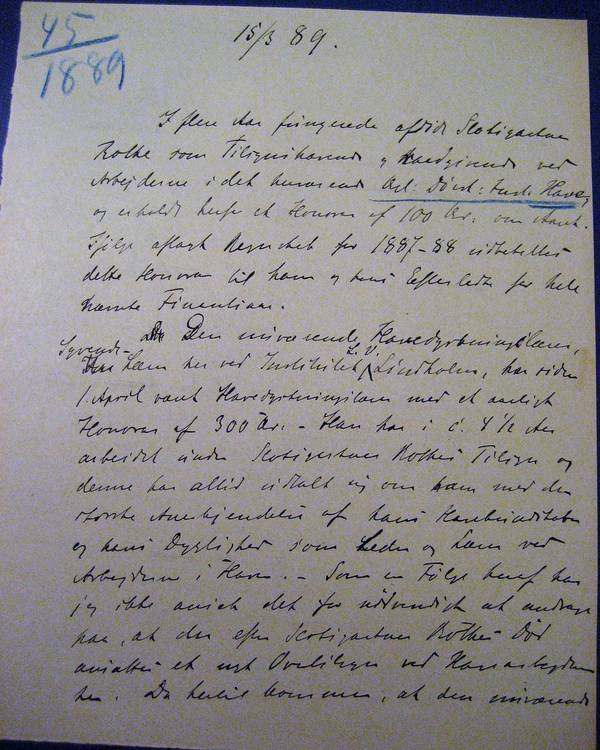 45
1889
15/3 89.
I flere Aar fungerede afdøde Slotsgartner
Rothe som Tilsynshavende og Raadgivende ved
Arbejderne i det kunerende Kgl: Døvst: Inst: Have,
og erholdt herfor et Honorar af 100 Kr: om Aaret.
Ifølge aflagt Regnskab for 1887-88 udbetaltes
dette Honorar til ham og hans Efterladte for hele
nævnte Finantsaar.
Den nuværende Havedyrkningslærer,
Syvende-
Lærer her ved Institutet L. V. Lindholm, har siden
1. April været Havedyrkningslærer med et aarligt
Honorar af 300 Kr. - Han har i c. 4 1/2 Aar
arbeidet under Slotsgartner Rothes Tilsyn og
denne har altid udtalt sig om ham med den
største Anerkjendelse af hans
og hans Dygtighed som Leder og Lærer ved
Arbejderne i Haven. - Som en Følge heraf har
jeg ikke anseet det for nødvendigt at andrage
paa, at der efter Slotsgartner Rothes Død
ansattes et nyt Overtilsyn ved Havearbejderne
her. Da hertil kommer, at den nuværende